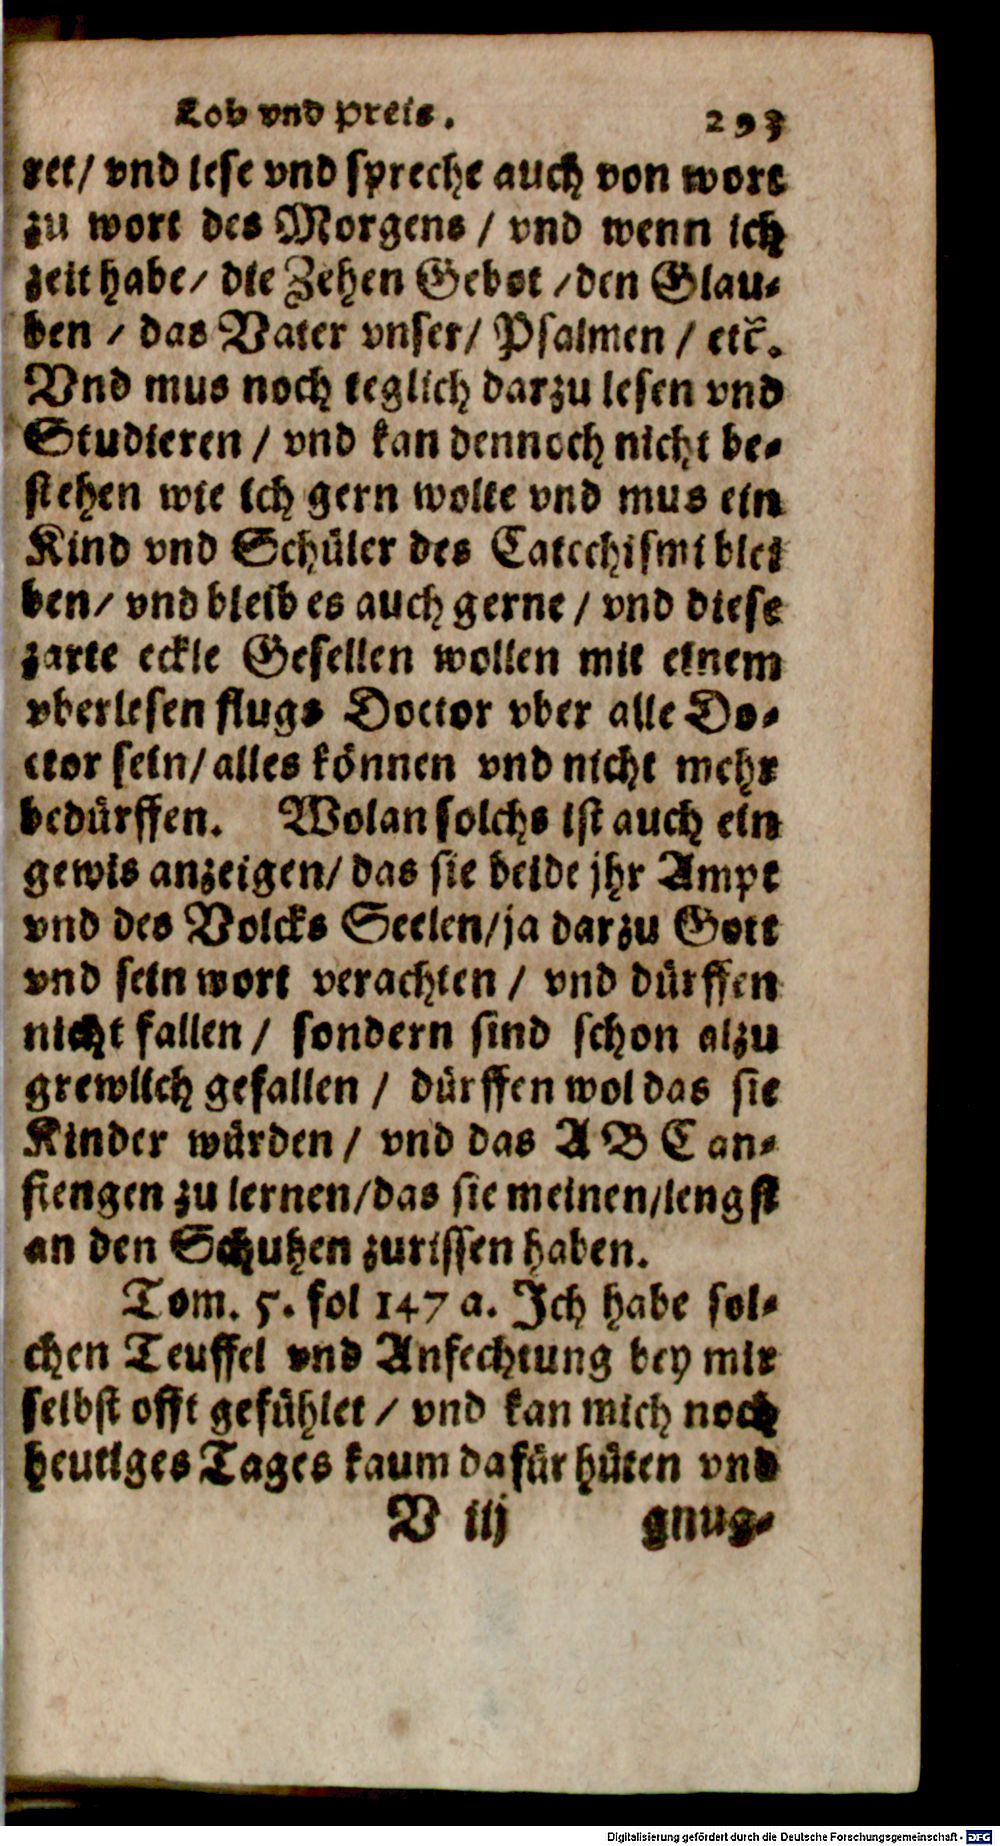 Lob vnd Preis. 293
ret/ vnd lese vnd spreche auch von wort
zu wort des Morgens / vnd wenn ich
zeit habe/ die Zehen Gebot /den Glau-
ben / das Vater vnser/ Psalmen / etc̃.
Vnd mus noch teglich darzu lesen vnd
Studieren / vnd kan dennoch nicht be-
stehen wie ich gern wolte vnd mus ein
Kind vnd Schüler des Catechismi blei
ben/ vnd bleib es auch gerne / vnd diese
zarte eckle Gesellen wollen mit einem
vberlesen flugs Doctor vber alle Do-
ctor sein/ alles können vnd nicht mehr
bedürffen. Wolan solchs ist auch ein
gewis anzeigen/ das sie beide jhr Ampt
vnd des Volcks Seelen/ja darzu Gott
vnd sein wort verachten / vnd dürffen
nicht fallen / sondern sind schon alzu
grewlich gefallen / dürffen wol das sie
Kinder würden / vnd das A B C an-
fiengen zu lernen/das sie meinen/lengst
an den Schuhen zurissen haben.
Tom. 5. fol 147 a. Ich habe sol-
chen Teuffel vnd Anfechtung bey mir
selbst offt gefühlet / vnd kan mich noch
heutiges Tages kaum dafür hüten vnd
V iij gnug-
Digitalisierung gefördert durch die Deutsche Forschungsgemeinschaft - DFG